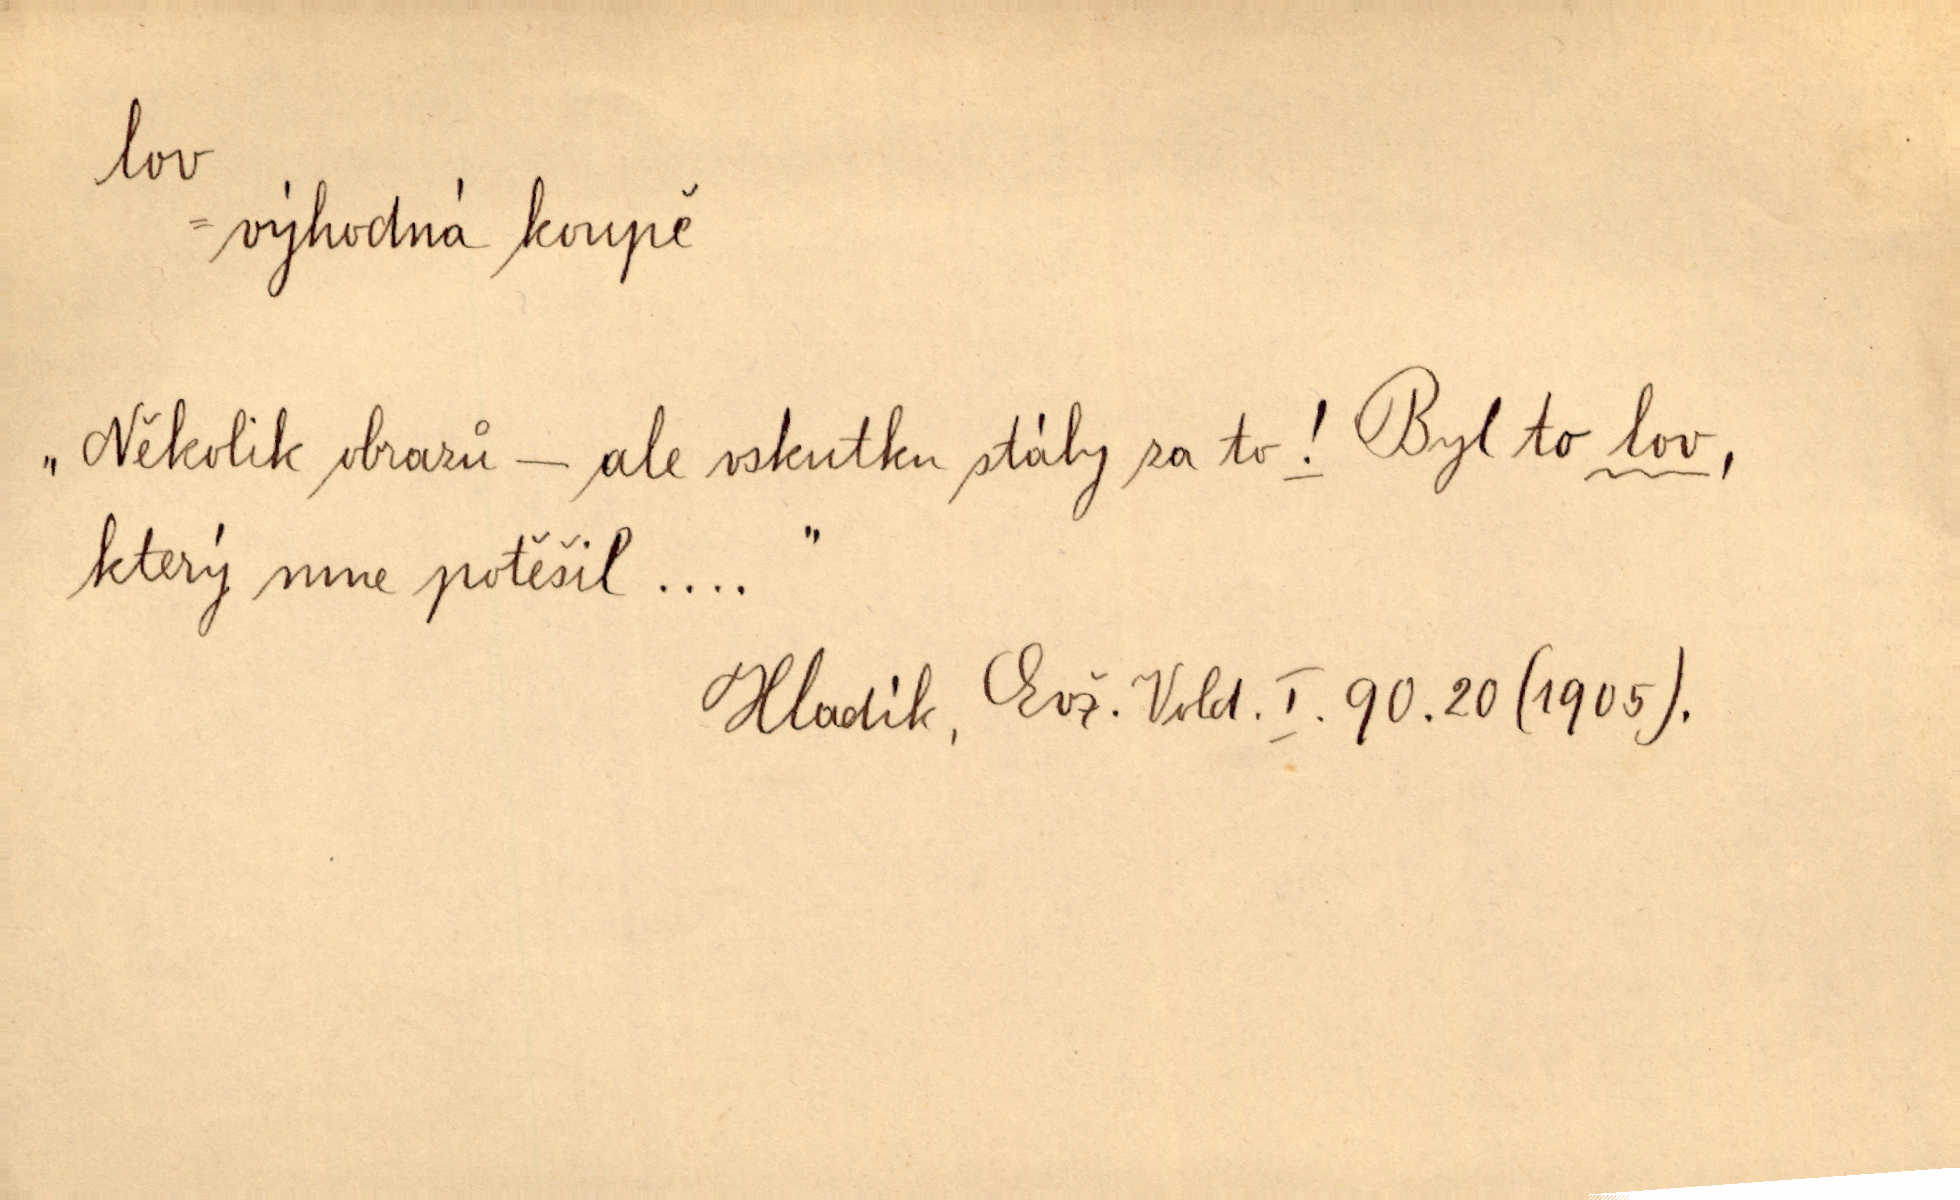 lov
= výhodná koupě
„Několik obrazů — ale vskutku stály za to! Byl to lov,
který mne potěšil ...."
Hladík, Evž. Vold. I. 90.20 (1905).